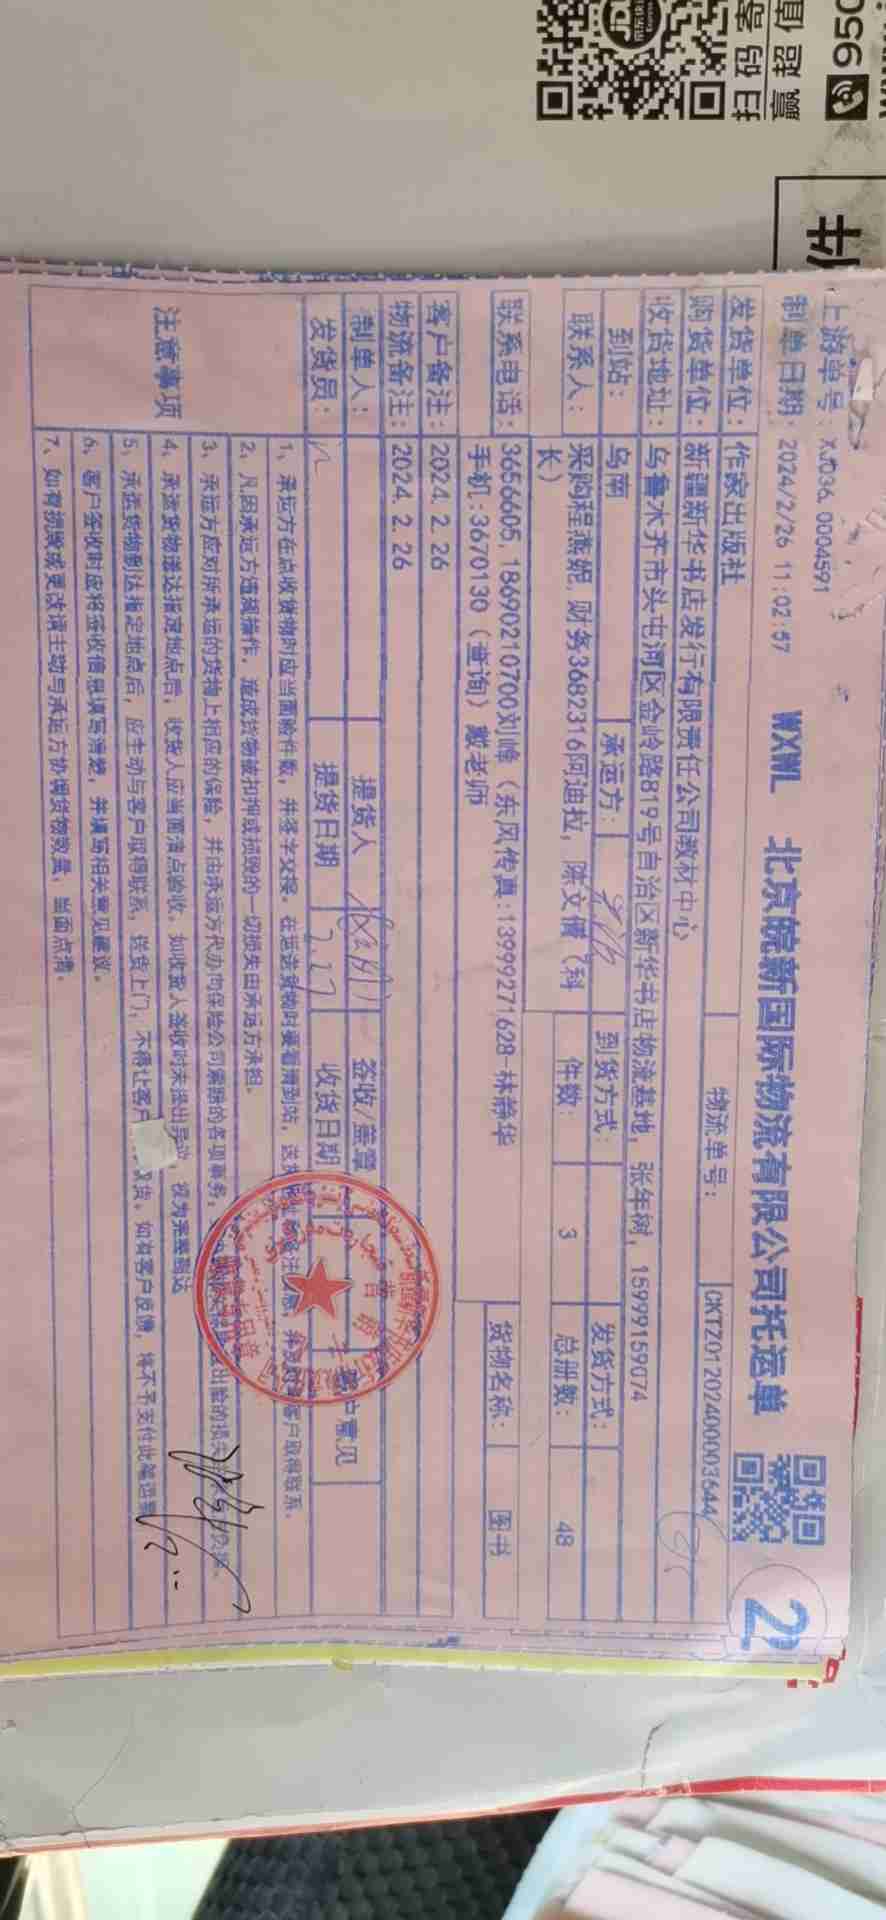 扫码寄
赢超值
950
件
上游单号: XJ036.0004591
制单日期: 2024/2/26 11:02:57 WXWL 北京皖新国际物流有限公司托运单
2
发货单位: 作家出版社 物流单号: CKTZ01202400003644
购货单位: 新疆新华书店发行有限责任公司教材中心
收货地址: 乌鲁木齐市头屯河区金岭路819号自治区新华书店物流基地, 张年树, 15999159074
到站: 乌南 承运方: 到货方式: 发货方式:
联系人: 采购程燕妮, 财务3682316阿迪拉, 陈文倩(科
长) 件数: 3 总册数: 48
联系电话: 3656605, 18690210700刘峰(东风传真:13999271628 林静华
手机:3670130(查询)戴老师 货物名称: 图书
客户备注: 2024.2.26
物流备注: 2024.2.26
制单人: 提货人 签收/盖章 客户意见
发货员: 提货日期 2.27 收货日期
注意事项
1、承运方在点收货物时应当面验件数, 并签字交接。在运送货物时要看清到站, 送货 客户取得联系.
2、凡因承运方违规操作, 造成货物被扣押或损毁的一切损失由承运方承担.
3、承运方应对所承运的货物上相应的保险, 并由承运方代办向保险公司索赔的各项事务. 出险的损失
4、承运货物送达指定地点后, 收货人应当面清点验收, 如收货人签收时未提出异议, 视为完整到达
5、承运货物到达指定地点后, 应主动与客户取得联系, 送货上门, 不得让客户 取货. 如有客户反馈, 将不予支付此笔运费
6、客户签收时应将签收信息填写清楚, 并填写相关意见建议.
7、如有损毁或更改请主动与承运方协调货物数量, 当面点清.